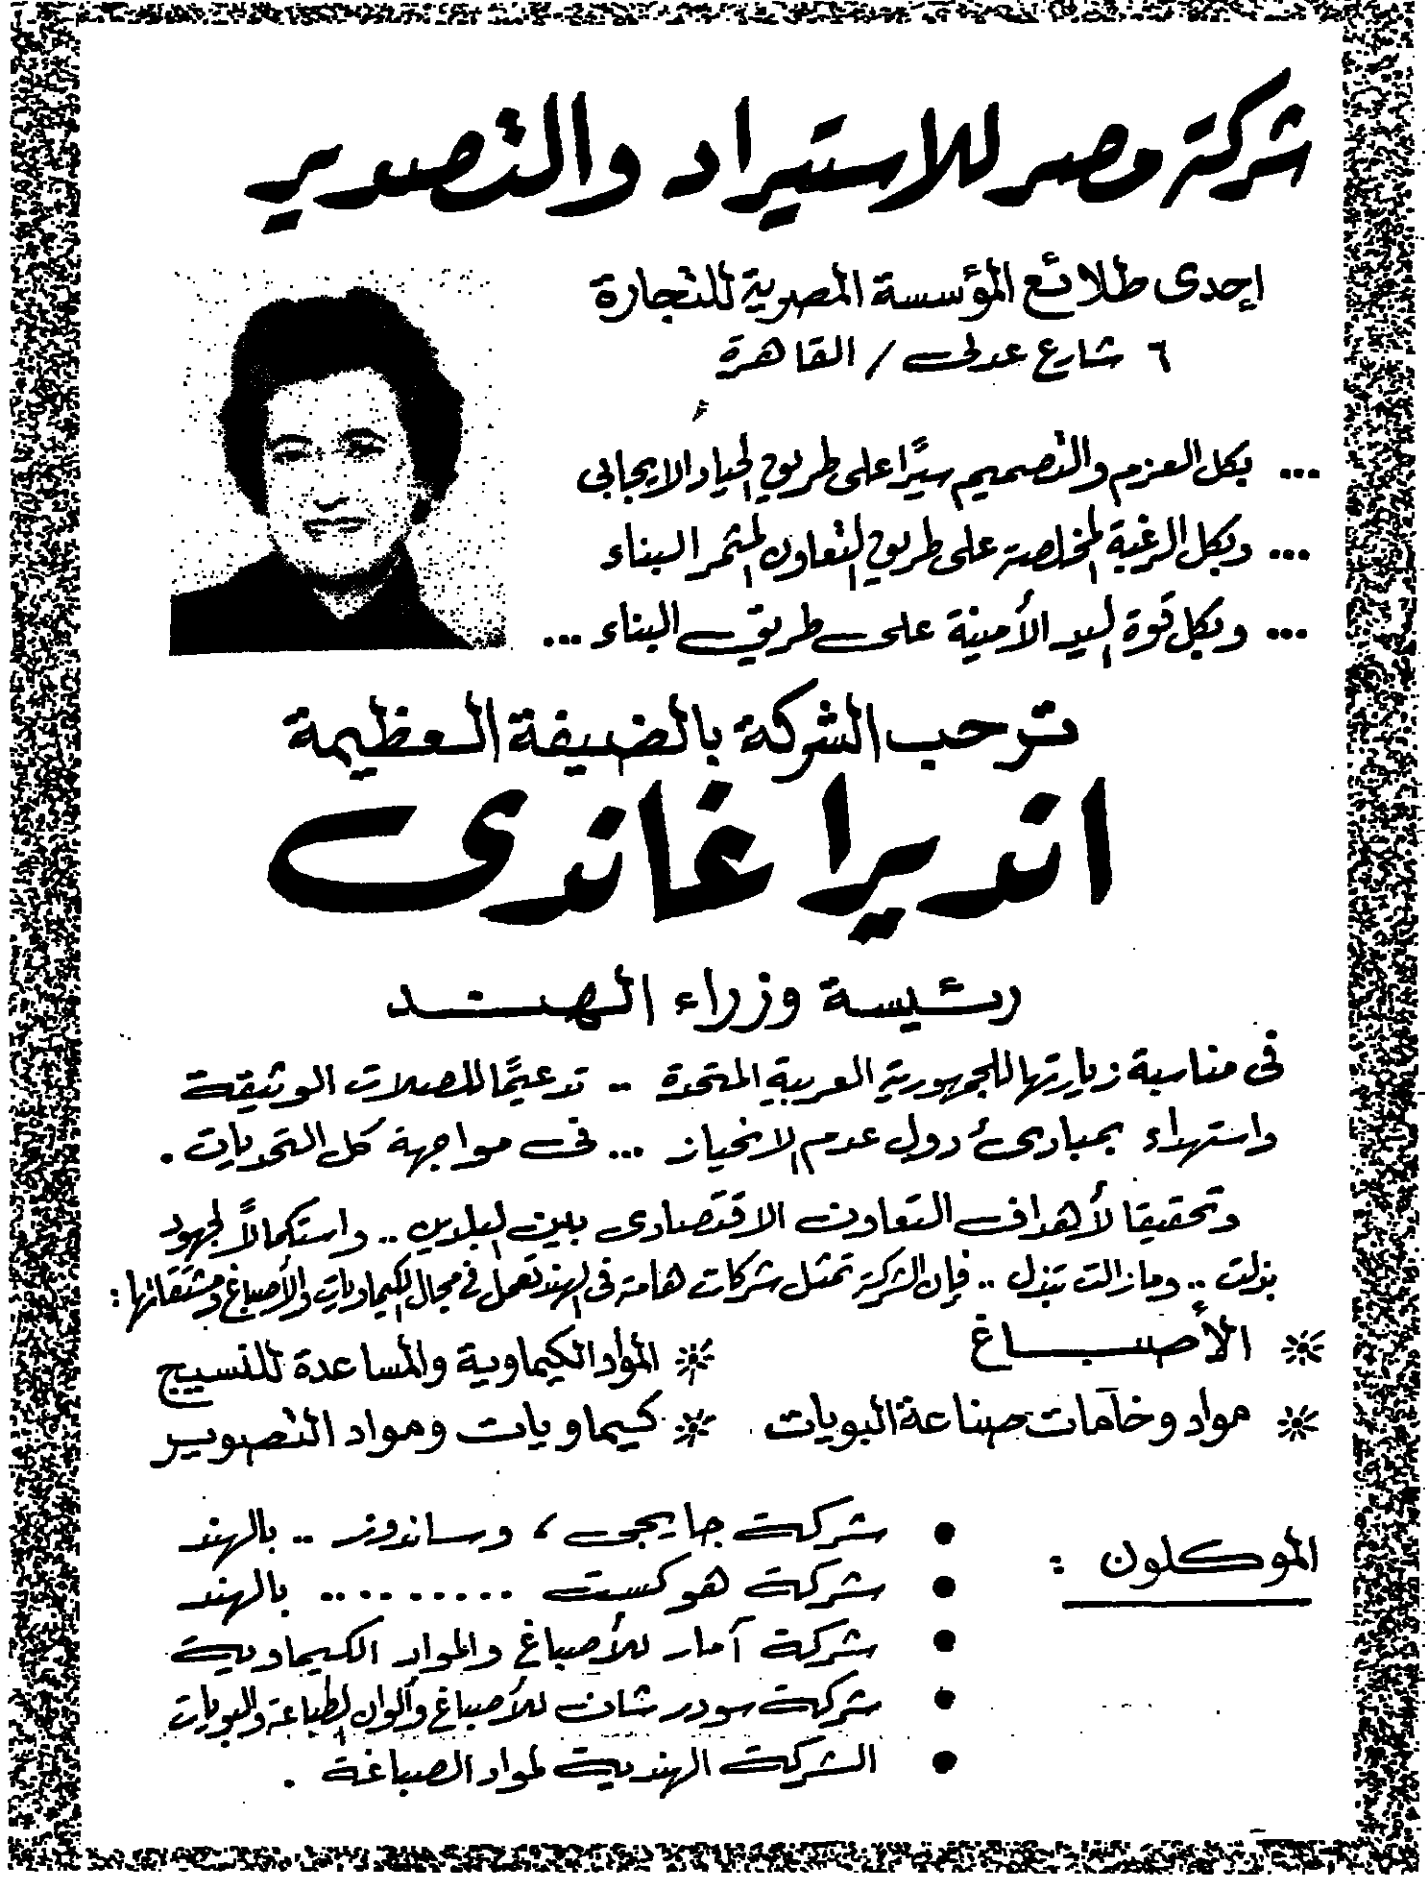 شركة مصر للاستيراد والتصدير
إحدى طلائع المؤسسة المصرية للتجارة
٦ شارع عدلى / القاهرة
... بكل العزم والتصميم سيرًا على طريق الحياد الايجابى
... وبكل الرغبة المخلصة على طريق التعاون المثمر البناء
... وبكل قوة اليد الأمينة على طريق البناء ...
ترحب الشركة بالضيفة العظيمة
انديرا غاندى
رئيسة وزراء الهند
فى مناسبة زيارتها للجمهورية العربية المتحدة .. تدعيمًا للصلات الوثيقة
واستهداء بمبادئ دول عدم الانحياز ... فى مواجهة كل التحديات .
وتحقيقا لأهداف التعاون الاقتصادى بين البلدين .. واستكمالاً لجهود
بذلت .. ومازالت تبذل .. فإن الشركة تمثل شركات هامة فى الهند تعمل فى مجال الكيماويات والأصباغ ومشتقاتها :
* الأصباغ * المواد الكيماوية والمساعدة للنسيج
* مواد وخامات صناعة البويات * كيماويات ومواد التصوير
الموكلون :
• شركة جايجى ، وساندوز .. بالهند
• شركة هوكست .......... بالهند
• شركة آمار للأصباغ والمواد الكيماوية
• شركة سودرشان للأصباغ وألوان الطباعة والبويات
• الشركة الهندية لمواد الصباغة .